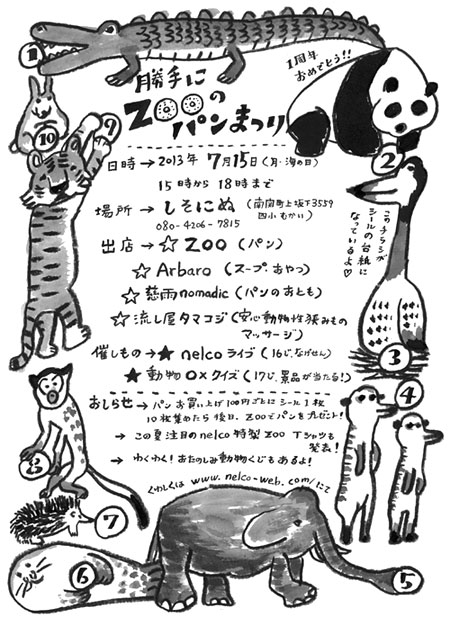 1周年
おめでとう!!
勝手に
ZOOの
パンまつり
日時→2013年 7月15日(月・海の日)
15時から 18時まで
場所→しそいぬ(南関町上坂下3559
四小むかい)
080-4206-7815
出店→☆ZOO(パン)
☆Arbaro(スープ・おやつ)
☆慈雨nomadic(パンのおとも)
☆流し屋タマコジ(安心動物性狭みもの
マッサージ)
催しもの→★nelcoライブ(16じ、なげせん)
★動物○×クイズ(17じ、景品が当たる!)
おしらせ→パンお買い上げ100円ごとにシール1枚
10枚集めたら後日、ZOOでパンをプレゼント!
→この夏注目のnelco特製ZOO Tシャツも
発表!
→わくわく!おたのしみ動物くじもあるよ!
くわしくは www.nelco-web.com/にて
このチラシが
シールの台紙に
なっているよ♡
1
2
3
4
5
6
7
8
9
10